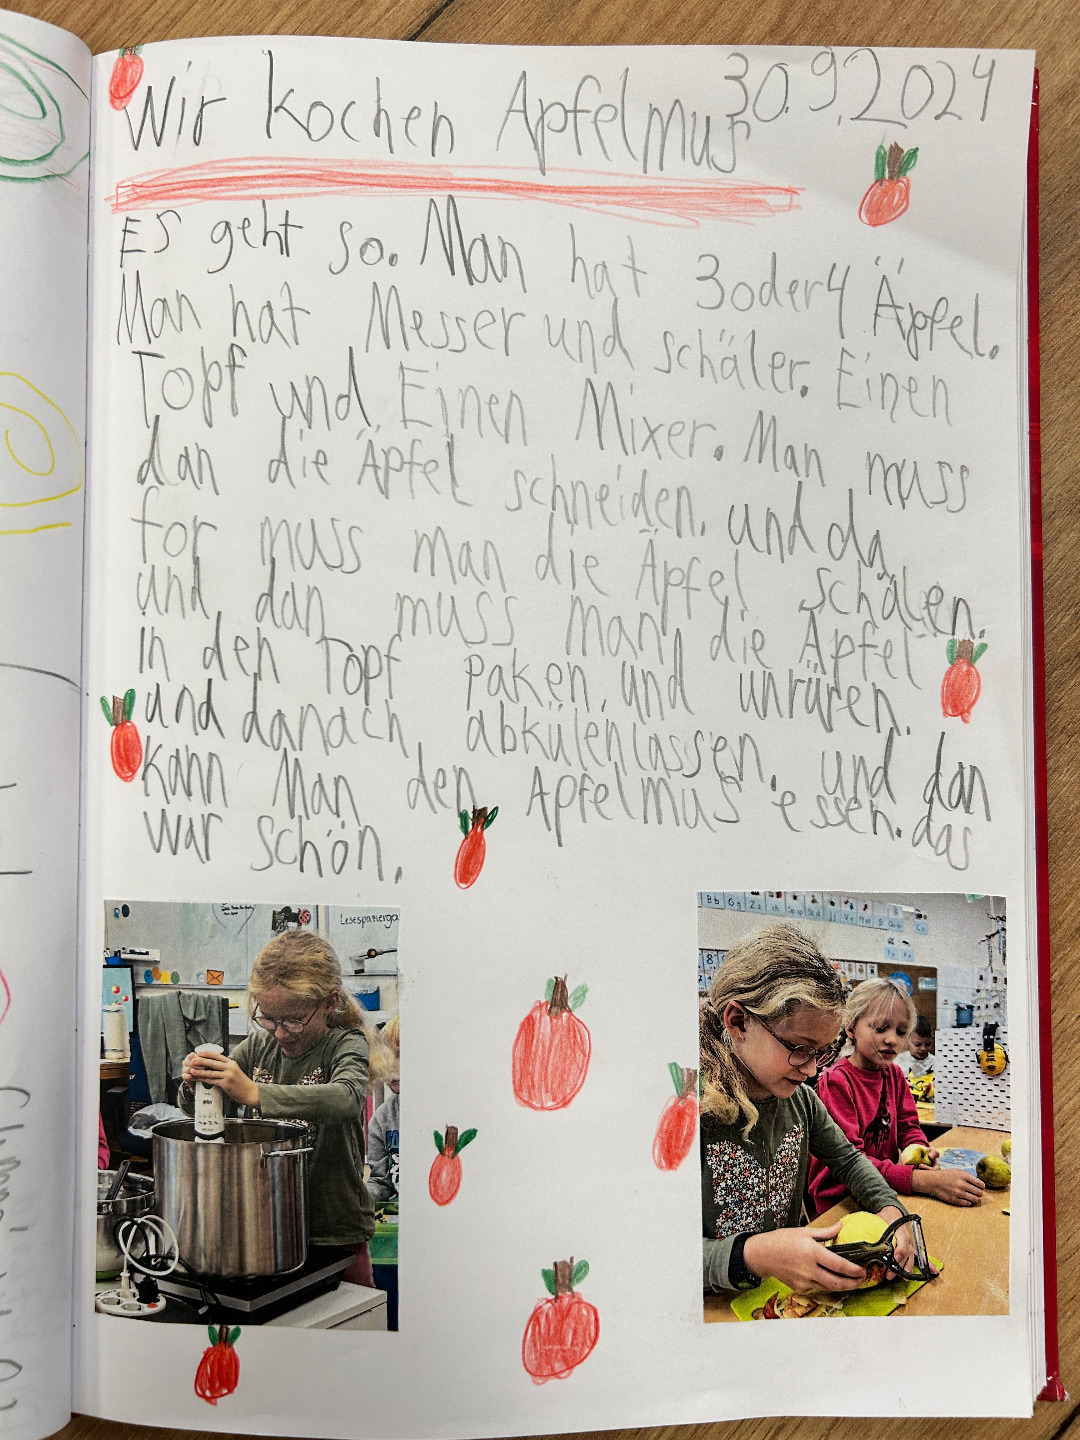 30.9.2024
Wir kochen Apfelmus
Es geht so. Man hat 3oder4 Äpfel.
Man hat Messer und schäler. Einen
Topf und Einen Mixer. Man muss
dan die Äpfel schneiden. und da
for muss man die Äpfel schälen.
und dan muss man die Äpfel
in den Topf paken. und unrüren.
und danach abkülenlassen. und dan
kann Man den Apfelmus essen. das
war schön.
Lesespazierga